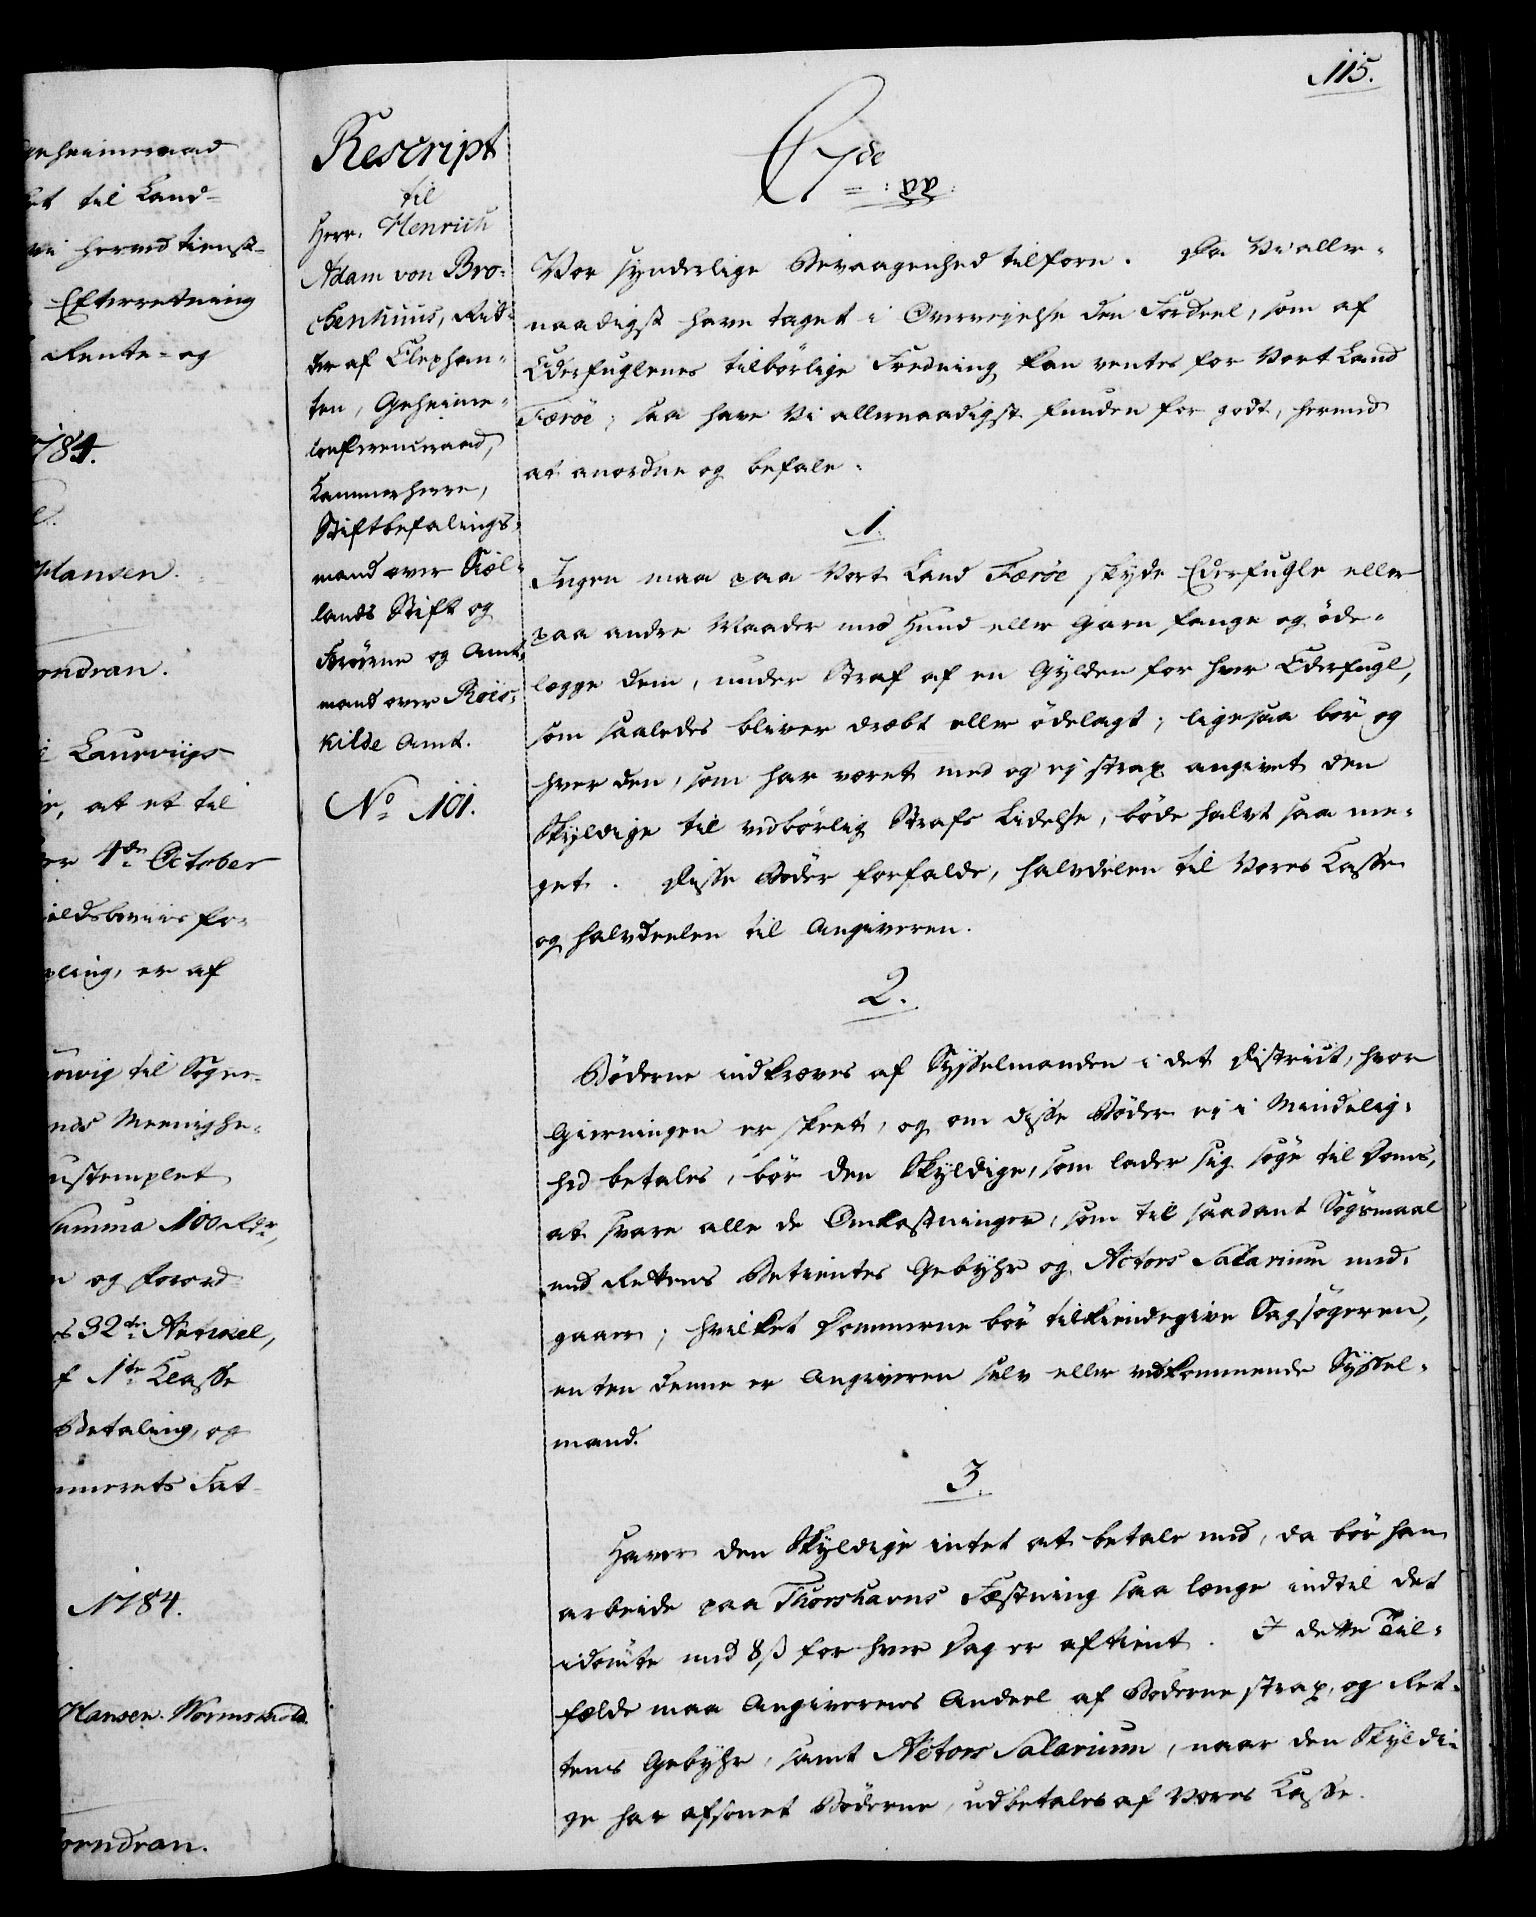 geheimeraad
et til Land-
vi hermed tienst-
Efterretning
Rente- og
1784.
Hansen.
orndran.
i Laurviigs
ie, at et til
er 4de October
ildsbeviis for
pling, er af
owig til Sogne-
nds Meenighe-
ustemplet
Summa 100 Rdr,
n og forord
s 32te Articul,
f 1te Klasse
Betaling, og
mmerets Fat-
1784.
Hansen. Wormskiold.
orndran.
115.
Rescript
til
Herr. Henrich
Adam von Bro-
ckenhuus, Rid-
der af Elephan-
ten, Geheime-
conferenceraad,
Kammerherre,
Stiftbefalings-
mand over Siæl-
lands Stift og
Færöerne og Amt-
mand over Roes-
kilde Amt.
No 101.
C 7de
Vor synderlige Bevaagenhed tilforn. Da Vi aller-
naadigst have taget i Overvejelse den Fordeel, som af
Ederfuglenes tilbörlige Fredning kan ventes for Vort Land
Færöe; saa have Vi allernaadigst funden for godt, hermed
at anordne og befale:
1.
Ingen maa paa Vort Land Færöe skyde Ederfugle eller
paa andre Maader med Hund eller Garn fange og öde-
legge dem, under Straf af en Gylden for hver Ederfugl,
som saaledes bliver dræbt eller ödelagt; ligesaa bör og
hver den, som har været med og ej strax angivet den
Skyldige til vedbörlig Strafs Lidelse, böde halvt saa me-
get. Disse Böder forfalde, halvdelen til Vores Kasse
og halvdeelen til Angiveren.
2.
Böderne indkræves af Sysselmanden i det District, hvor
Gierningen er skeet, og om disse Böder ej i Mindelig-
hed betales, bör den Skyldige, som lader sig söge til Doms,
at svare alle de Omkostninger, som til saadant Sögsmaal
med Rettens Betientes Gebyhr og Actors Salarium med-
gaaer; hvilket Dommerne bör tilkiendegive Sagsögeren,
enten denne er Angiveren selv eller vedkommende Syssel-
mand.
3.
Haver den Skyldige intet at betale med, da bör han
arbeide paa Thorshavns Fæstning saa længe indtil det
idömte med 8 ß for hver Dag er aftient. I dette Til-
fælde maa Angiverens Andeel af Böderne strax, og Ret-
tens Gebyhr, samt Actors Salarium, naar den Skyldi-
ge har afsonet Böderne, udbetales af Vores Kasse.